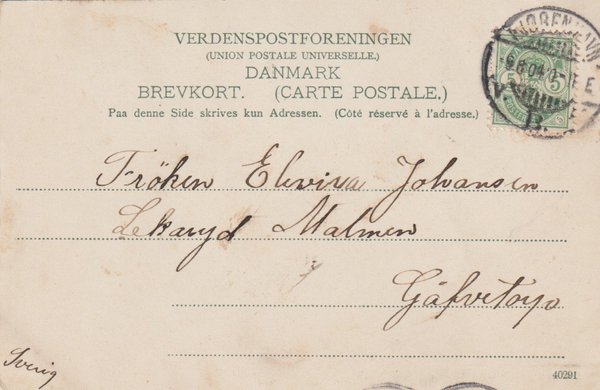 VERDENSPOSTFORENINGEN
(UNION POSTALE UNIVERSELLE.)
DANMARK
BREVKORT. (CARTE POSTALE.)
Paa denne Side skrives kun Adressen. (Côté réservé à l'adresse.)
5 5
B.
Fröken Elvira Johansen
Lekaryd Malmen
Gäfvetorp
Sverig
40291